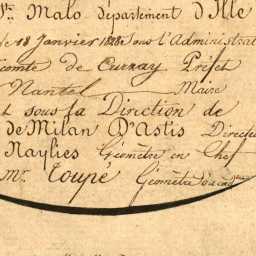 St. Malo département d'Ille
le 18 Janvier 1828 sous l'Administrat
comte de Curzay Préfet
Nantel Maire
t sous la Direction de
de Milan D'Astis Directeu
Naylies Géomètre en Chef
mr. Toupé Géomètre